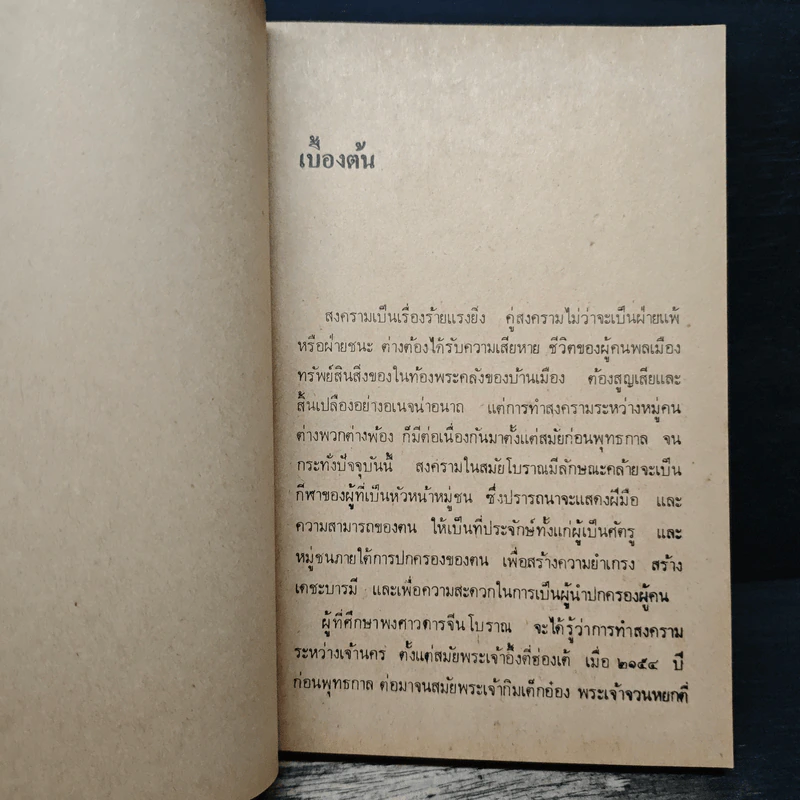 เบื้องต้น
สงครามเป็นเรื่องร้ายแรงยิ่ง คู่สงครามไม่ว่าจะเป็นฝ่ายแพ้
หรือฝ่ายชนะ ต่างต้องได้รับความเสียหาย ชีวิตของผู้คนพลเมือง
ทรัพย์สินสิ่งของในท้องพระคลังของบ้านเมือง ต้องสูญเสียและ
สิ้นเปลืองอย่างอเนจน่าอนาถ แต่การทำสงครามระหว่างหมู่คน
ต่างพวกต่างพ้อง ก็มีต่อเนื่องกันมาตั้งแต่สมัยก่อนพุทธกาล จน
กระทั่งปัจจุบันนี้ สงครามในสมัยโบราณมีลักษณะคล้ายจะเป็น
กีฬาของผู้ที่เป็นหัวหน้าหมู่ชน ซึ่งปรารถนาจะแสดงฝีมือ และ
ความสามารถของตน ให้เป็นที่ประจักษ์ทั้งแก่ผู้เป็นศัตรู และ
หมู่ชนภายใต้การปกครองของตน เพื่อสร้างความยำเกรง สร้าง
เดชะบารมี และเพื่อความสะดวกในการเป็นผู้นำปกครองผู้คน
ผู้ที่ศึกษาพงศาวดารจีนโบราณ จะได้รู้ว่าการทำสงคราม
ระหว่างเจ้านคร ตั้งแต่สมัยพระเจ้าอึ้งตี่ฮ่องเต้ เมื่อ ๒๑๕๔ ปี
ก่อนพุทธกาล ต่อมาจนสมัยพระเจ้ากิมเต็กอ๋อง พระเจ้าจวนหยกตี่